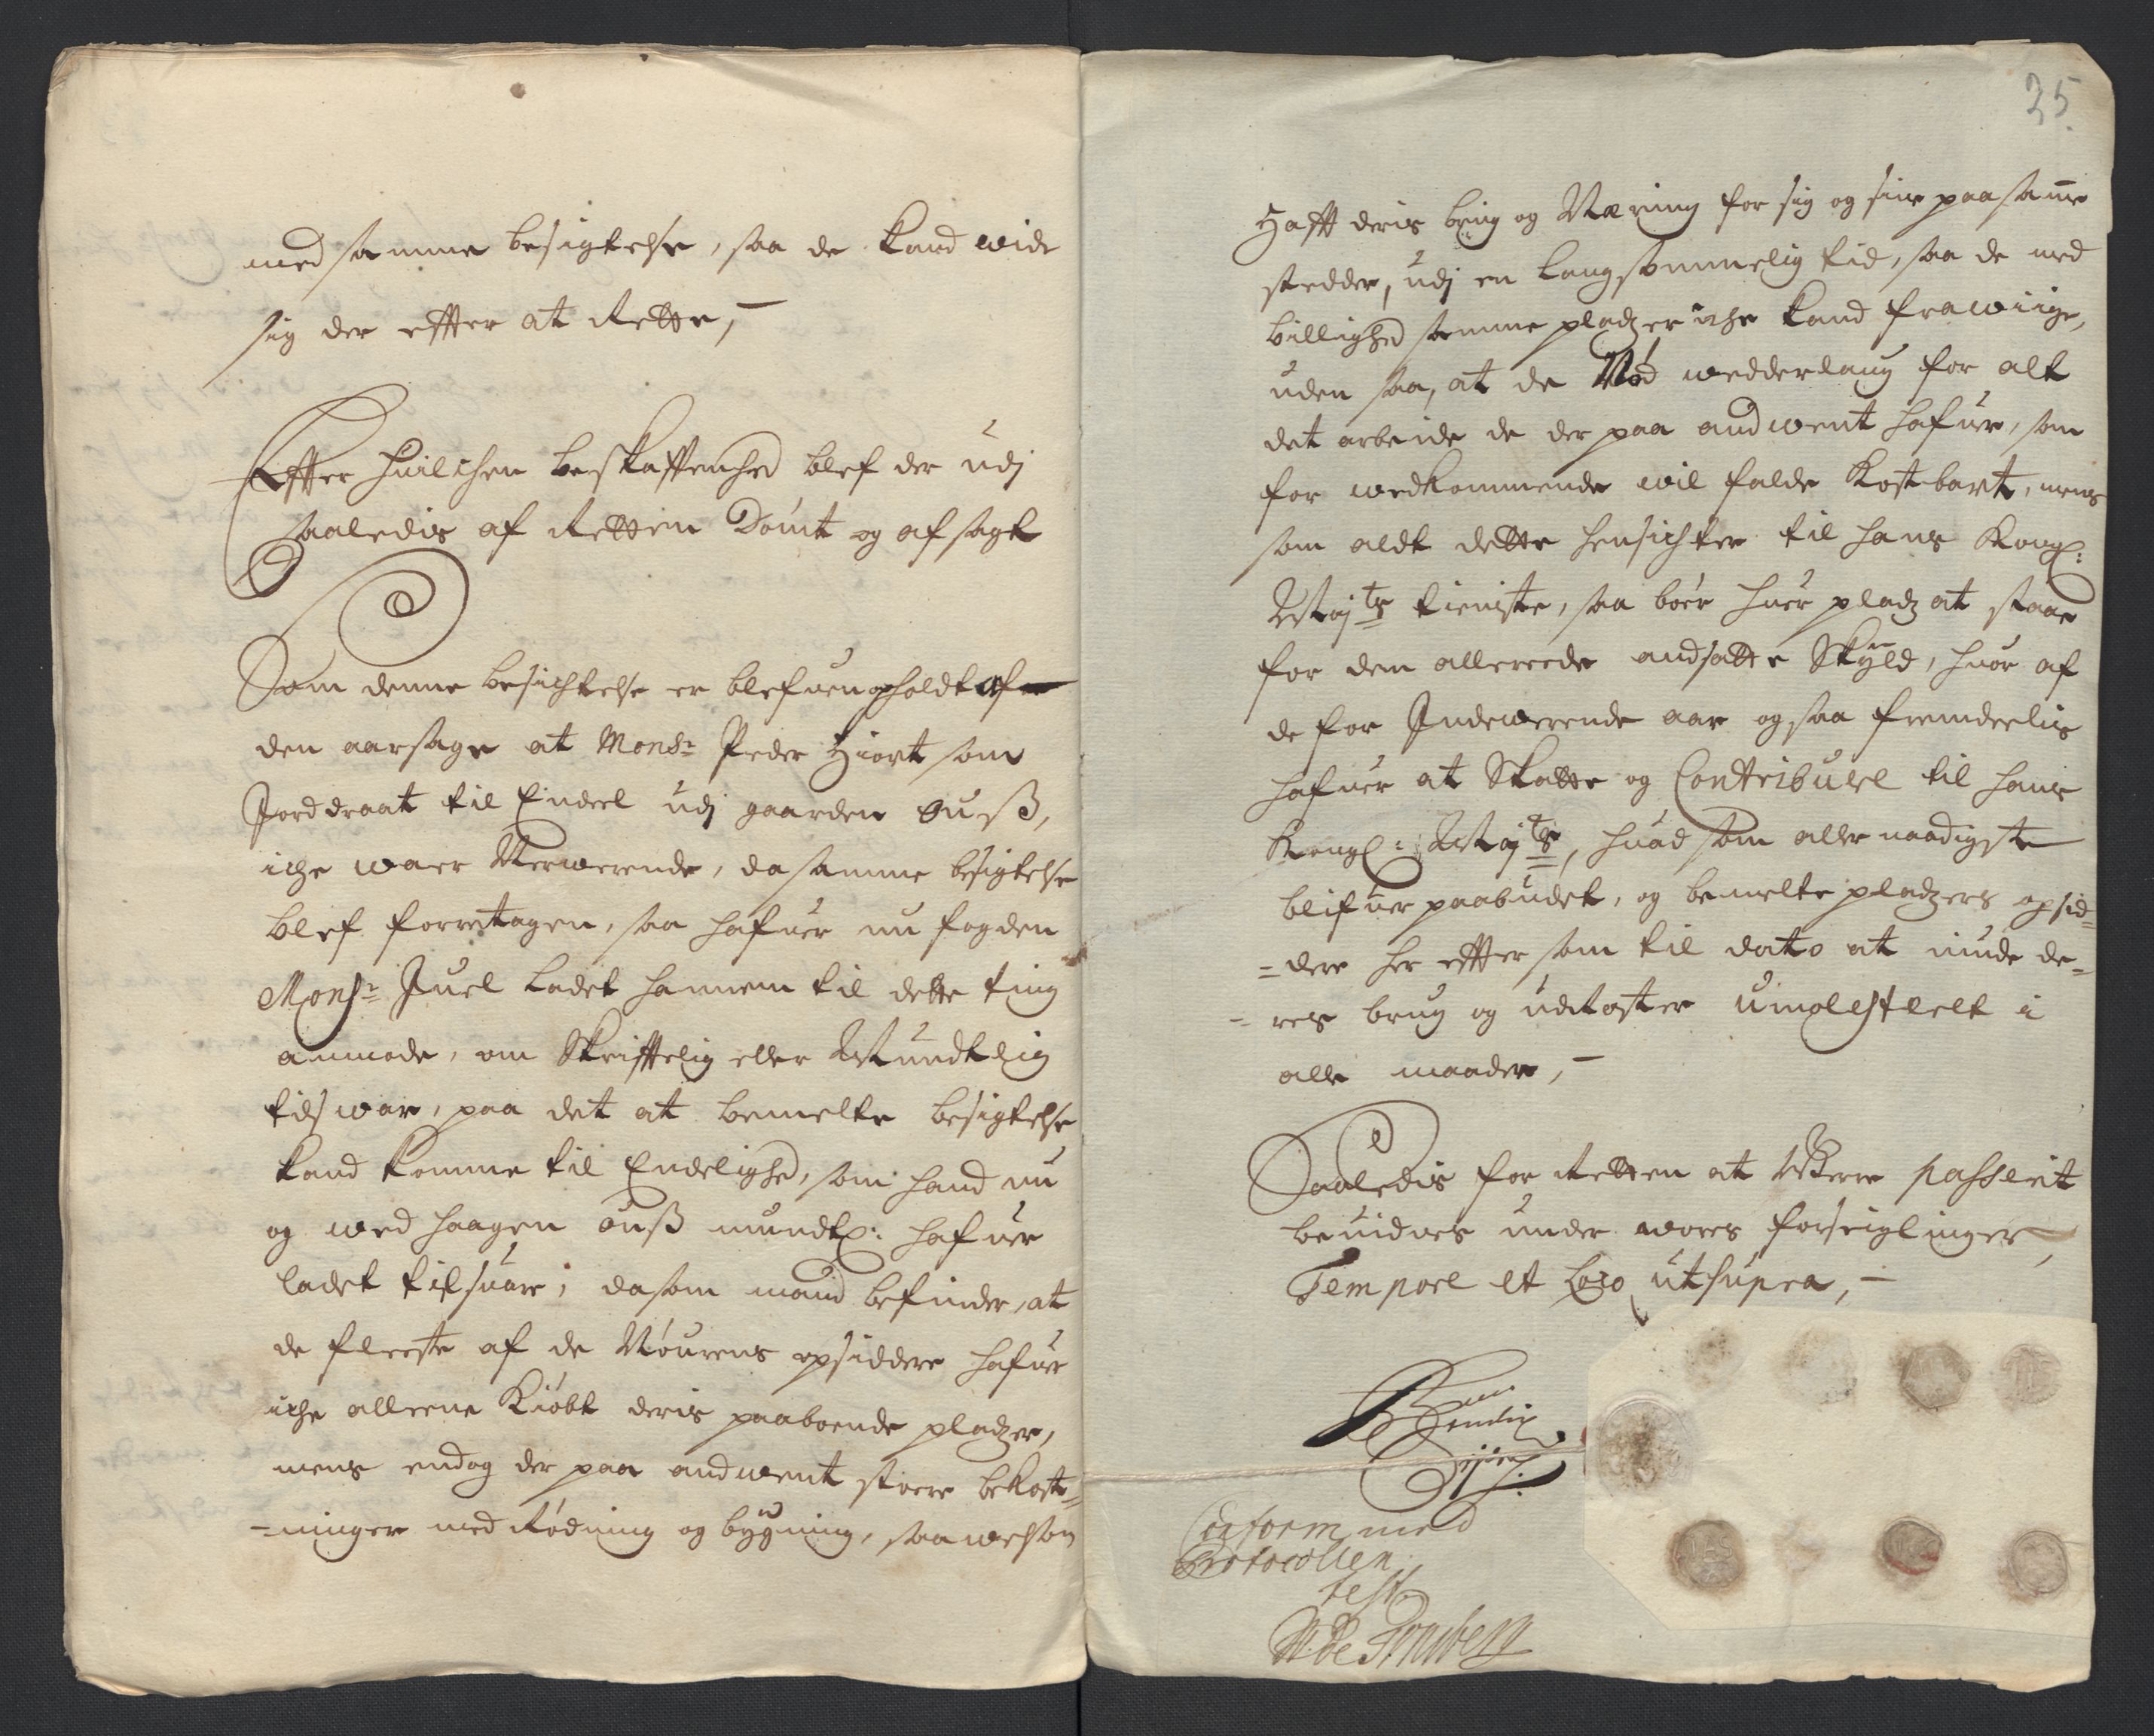 med samme besigtelse, saa de kand wide
sig der effter at Rette,
Effter huilchen beskaffenhed blef der udj
saaledis af Retten Dömt og afsagt
Som denne besichtelse er blefuen opholdt af
den aarsage at Monsr Peder Hiort som
Jorddraat til Endeel udj gaarden Ous,
iche waer Nerwerende, da samme besigtelse
blef forretagen, saa hafuer nu fogden
Monsr Juel ladet hannem til dette ting
ammode, om Skrifftelig eller Mundtlig
tilswar, paa det at bemelte besigtelse
kand komme til Endelighed, som hand nu
og wed Haagen Ouß mundtl: hafuer
ladet tilsuare; da som mand befinder, at
de fleeste af de Nöurens opsiddere hafuer
iche alleene Kiöbt deris paaboende pladzer,
mens endog der paa andwent stoere bekost-
-ninger med Rödning og bygning, saawelsom
35.
Hafft deris brug og Næring for sig og sine paa samme
stedder, udj en langsommelig tid, saa de med
billighed samme pladzer iche kand frawiige,
uden saa, at de Nöd wedderlaug for alt
det arbeide de der paa andwent hafuer, som
for wedkommende wil falde kostbart, mens
som aldt dette hensichter til hans Kongl:
Majts tieniste, saa böer huer pladz at staae
for den allereede andsatte Skyld, huor af
de for Indewerende aar og saa fremdeelis
hafuer at Skatte og Contribuere til hans
Kongl: Majts, huad som allernaadigste
blifuer paabudet, og bemelte pladzers opsid-
-dere her effter som til dato at niude de-
-res brug og udkoster umolesteelt i
alle maader,
Saaledis for Retten at Were passerit
beuidnes under wores forseiglinger
Tempore et Loco utsupra,
Conform med
Protocollen
test